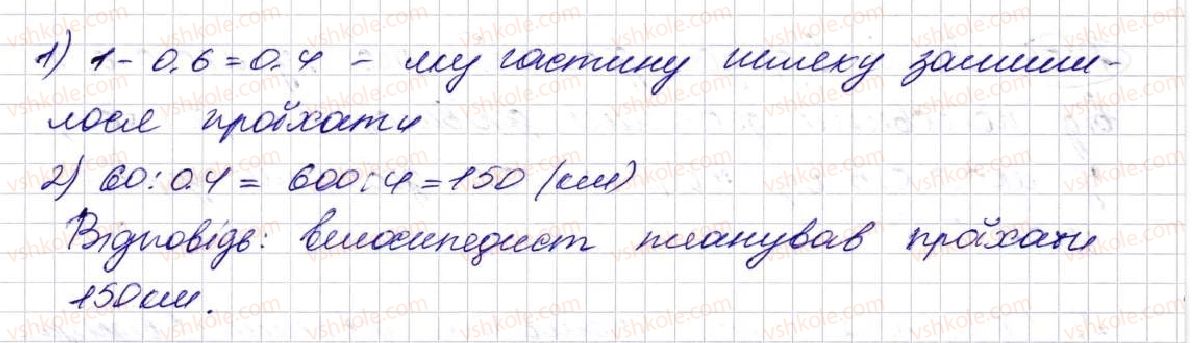 1) 1 - 0.6 = 0.4 - яку частину шляху залиши-
лося проїхати
2) 60 : 0.4 = 600 : 4 = 150 (км)
Відповідь: велосипедист планував проїхати
150 км.
vshkole.com